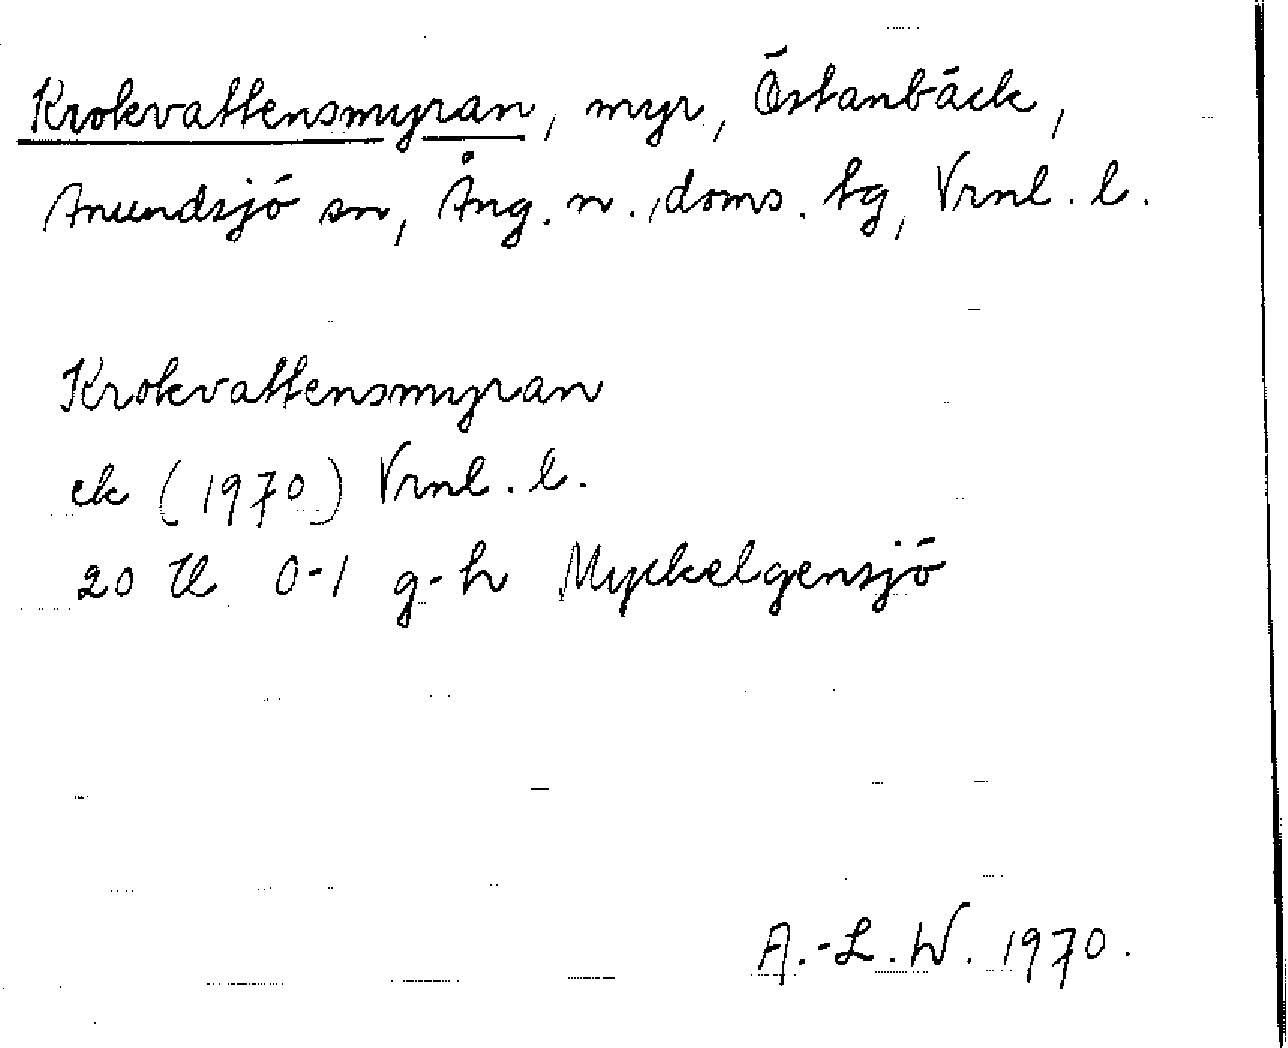 Krokvattensmyran, myr, Östanbäck,
Anundsjö sn, Ång. n. doms. tg, Vrnl. l.
Krokvattensmyran
ek (1970) Vrnl. l.
20 H 0-1 g-h Myckelgensjö
A.-L.W. 1970.